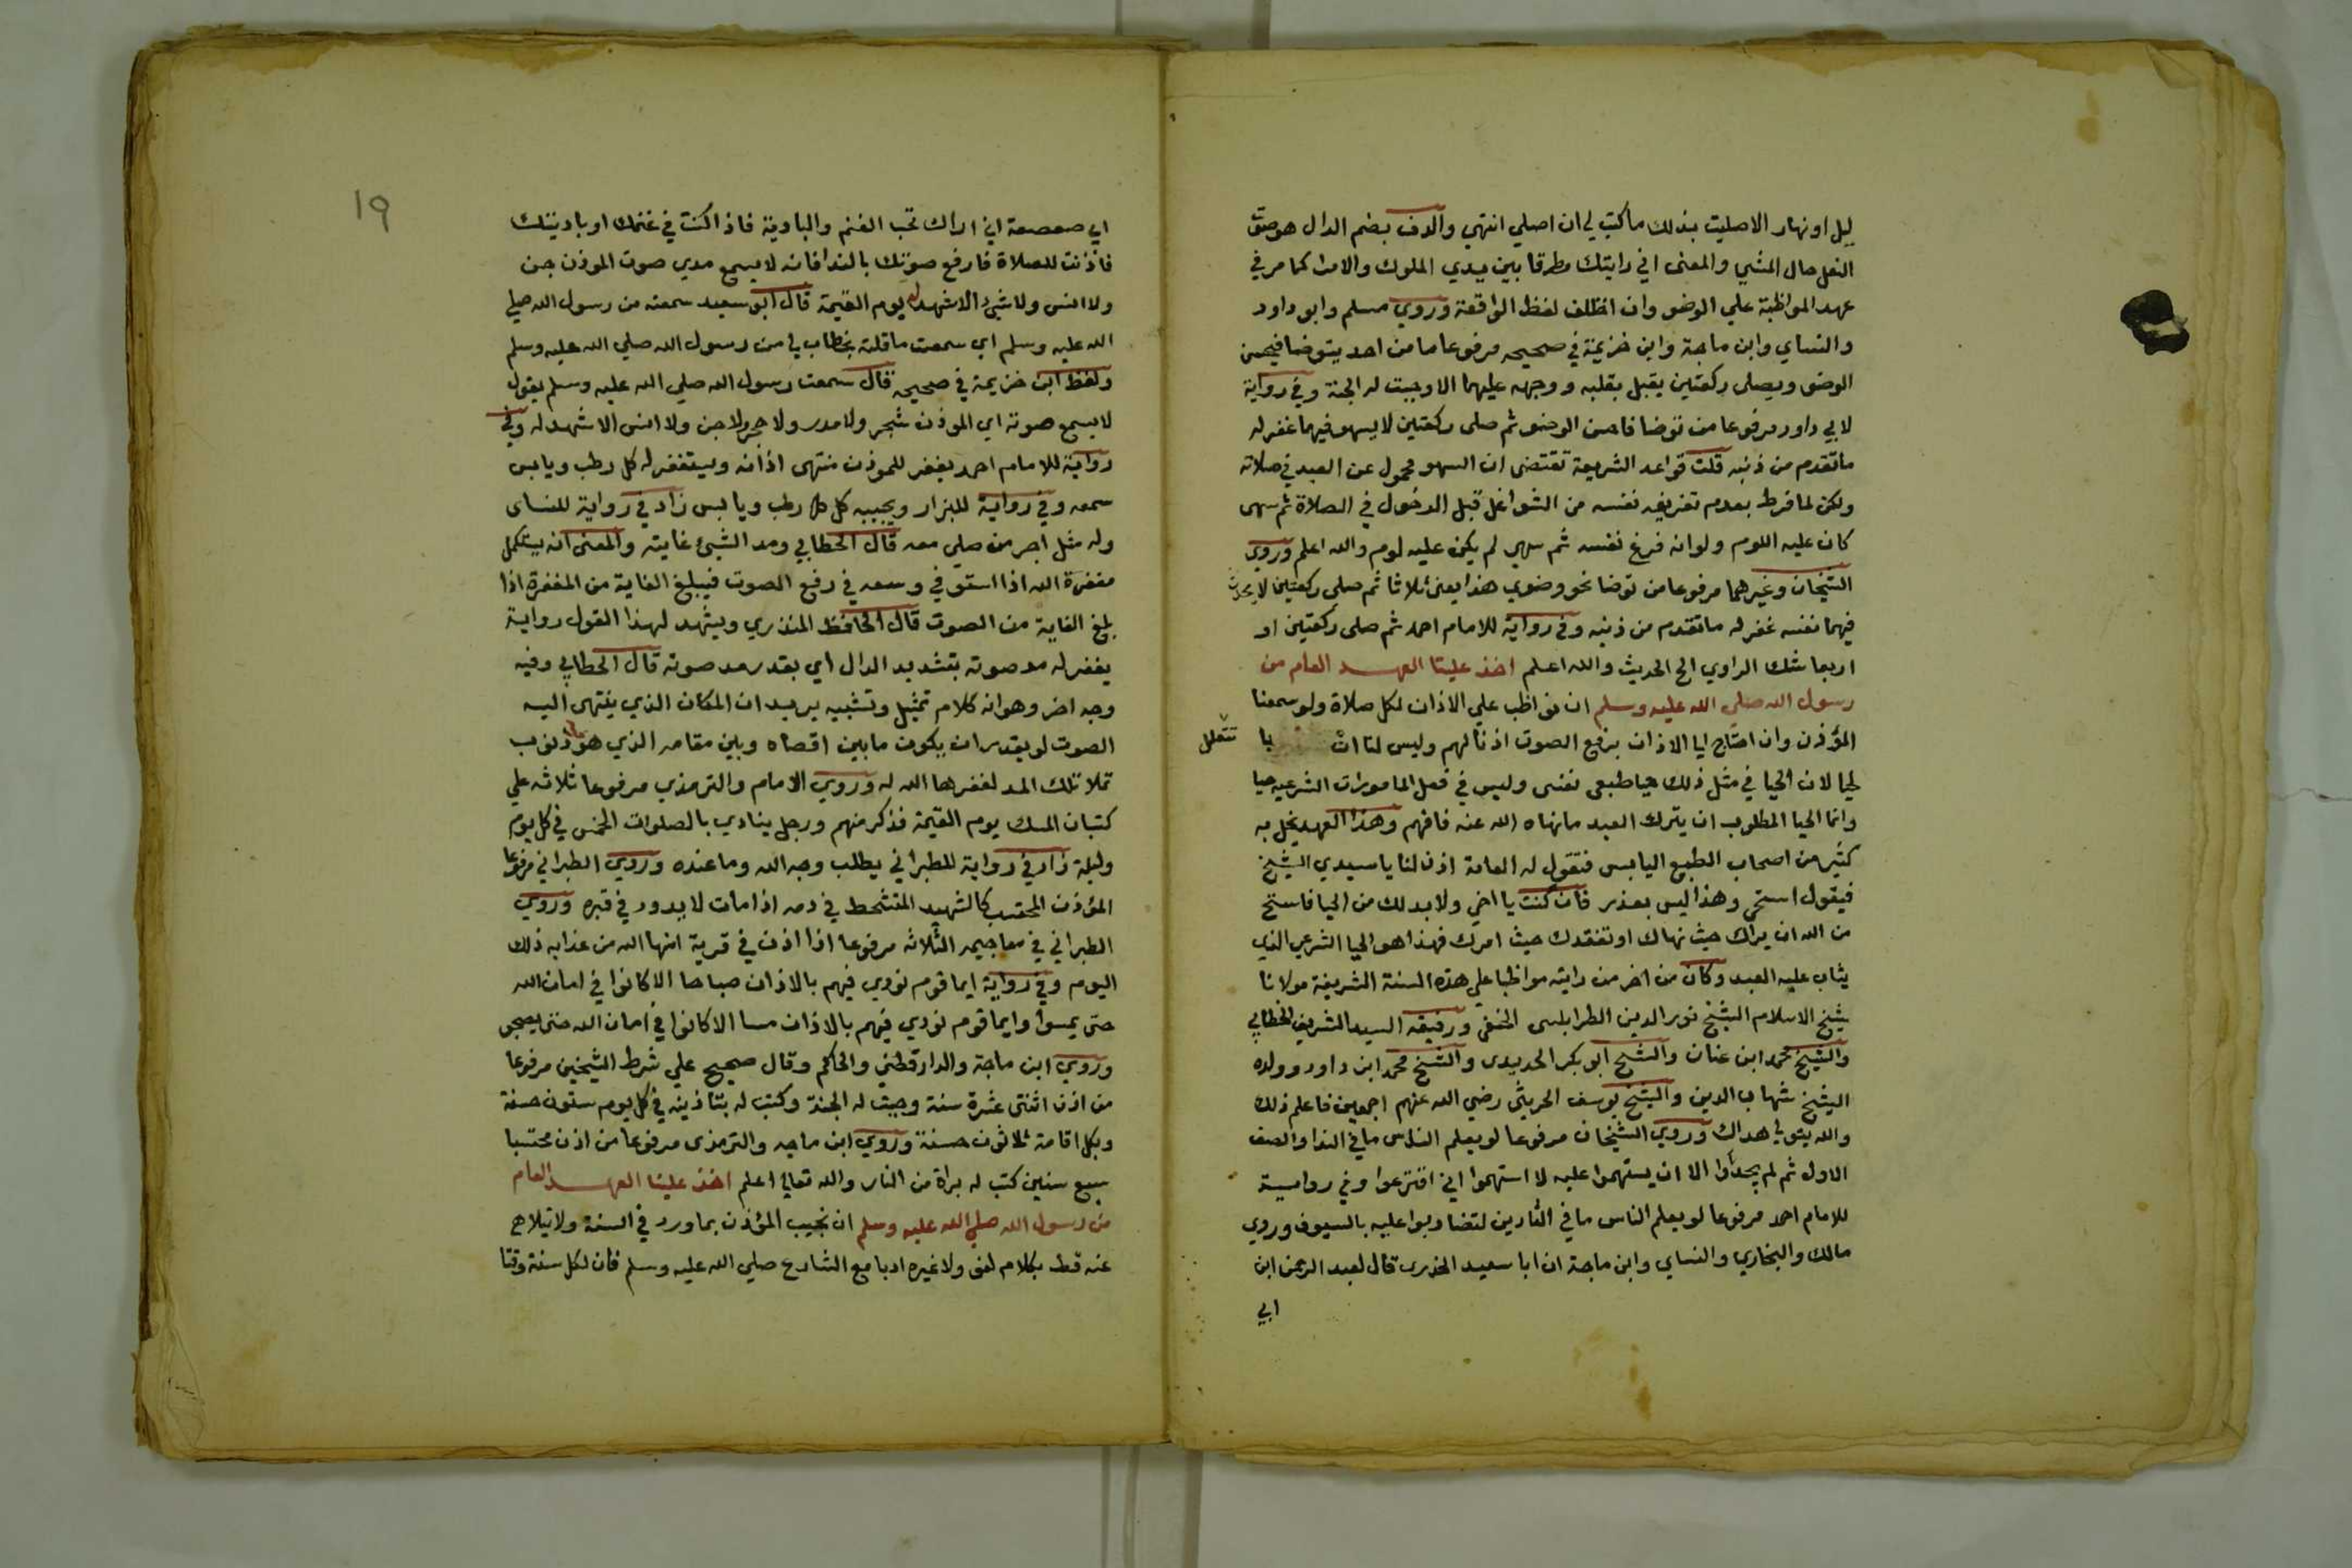 ليل او نهار الا صليت بذلك ما كتب لي ان اصلي انتهي والدف بضم الدال هو صوت
النعل حال المشي والمعنى اني رايتك مطرقا بين يدي الملوك والامرا كما مر في
عهد المواظبة علي الوضو وان اختلف لفظ الواقعة وروي مسلم وابو داود
والنساي وابن ماجة وابن خزيمة في صحيحه مرفوعا ما من احد يتوضا فيحسن
الوضو ويصلي ركعتين يقبل بقلبه ووجهه عليهما الا وجبت له الجنة وفي رواية
لابي داود مرفوعا من توضا فاحسن الوضو ثم صلى ركعتين لا يسهو فيهما غفر له
ما تقدم من ذنبه قلت قواعد الشريعة تقتضي ان السهو محمول عن العبد في صلاته
ولكن لما فرط بعدم تفريغه نفسه من الشواغل قبل الدخول في الصلاة ثم سهى
كان عليه اللوم ولو انه فرغ نفسه ثم سهي لم يكن عليه لوم والله اعلم وروي
الشيخان وغيرهما مرفوعا من توضا نحو وضوي هذا يعني ثلاثا ثم صلى ركعتين لا يحدث
فيهما نفسه غفر له ما تقدم من ذنبه وفي رواية للامام احمد ثم صلى ركعتين او
اربعا شك الراوي الخ الحديث والله اعلم اخذ علينا العهد العام من
رسول الله صلي الله عليه وسلم ان نواظب علي الاذان لكل صلاة ولو سمعنا
المؤذن وان احتاج ايا الاذان برفع الصوت اذنا لهم وليس لنا ان نتعلل با
لحيا لان الحيا في مثل ذلك حيا طبعي نفسى وليس في فعل المامورات الشرعيه حيا
وانما الحيا المطلوب ان يترك العبد ما نهاه الله عنه فافهم وهذا العهد يخل به
كثير من اصحاب الطبع اليابس فتقول له العامة اذن لنا يا سيدي الشيخ
فيقول استحي وهذا ليس بعذر فان كنت يا اخي ولا بد لك من الحيا فاستح
من الله ان يراك حيث نهاك او تفقدك حيث امرك فهذا هو الحيا الشرعي الذي
يثاب عليه العبد وكان من اخر من رايته مواظبا على هذه السنة الشريفة مولانا
شيخ الاسلام الشيخ نور الدين الطرابلسى الحنفي ورفيقه السيد الشريف الخطابي
والشيخ محمد ابن عنان والشيخ ابو بكر الحديدى والشيخ محمد ابن داود وولده
الشيخ شهاب الدين والشيخ يوسف الحريثي رضي الله عنهم اجمعين فاعلم ذلك
والله يتولي هداك وروي الشيخان مرفوعا لو يعلم الناس ما في الندا والصف
الاول ثم لم يجدوا الا ان يستهموا عليه لا استهموا اي اقترعوا وفي رواية
للامام احمد مرفوعا لو يعلم الناس ما في التاذين لتضاربوا عليه بالسيوف وروي
مالك والبخاري والنساي وابن ماجة ان ابا سعيد الخدري قال لعبد الرحمن ابن
ابي
١٩
ابي صعصعة اني اراك تحب الغنم والبادية فاذا كنت في غنمك او باديتك
فاذنت للصلاة فارفع صوتك بالندا فانه لا يسمع مدي صوت الموذن جن
ولا انس ولا شيء الا شهد له يوم القيمة قال ابو سعيد سمعته من رسول الله صلي
الله عليه وسلم اي سمعت ما قلته بخطاب لي من رسول الله صلي الله عليه وسلم
ولفظ ابن خزيمة في صحيحه قال سمعت رسول الله صلي الله عليه وسلم يقول
لا يسمع صوته اي الموذن شجر ولا مدر ولا حجر ولا جن ولا انسى الا شهد له وفي
رواية للامام احمد يغفر للموذن منتهى اذانه ويستغفر له كل رطب ويابس
سمعه وفي رواية للبزار ويجيبه كل رطب ويابس زاد في رواية للنساى
وله مثل اجر من صلي معه قال الخطابي ومد الشيئ غايته والمعنى انه يستكمل
مغفرة الله اذا استوفي وسعه في رفع الصوت فيبلغ الغاية من المغفرة اذا
بلغ الغاية من الصوت قال الحافظ المنذري ويشهد لهذا القول رواية
يغفر له مد صوته بتشديد الدال اي بقدر مد صوته قال الخطابي وفيه
وجه اخر وهو انه كلام تمثيل وتشبيه يريد ان المكان الذي ينتهى اليه
الصوت لو يقدر ان يكون ما بين اقصاه وبين مقامه الذي هو فيه ذنوب
تملا تلك المد لغفرها الله له وروي الامام والترمذي مرفوعا ثلاثة علي
كثبان المسك يوم القيمة فذكر منهم ورجل ينادي بالصلوات الخمس في كل يوم
وليلة زاد في رواية للطبراني يطلب وجه الله وما عنده وروي الطبراني مرفوعا
المؤذن المحتسب كالشهيد المتشحط في دمه اذا مات لا يدود في قبره وروي
الطبراني في معاجيمه الثلاثه مرفوعا اذا اذن في قرية امنها الله من عذابه ذلك
اليوم وفي رواية ايما قوم نودي فيهم بالاذان صباحا الا كانوا في امان الله
حتى يمسوا وايما قوم نودي فيهم بالاذان مسا الا كانوا في امان الله حتى يصبحو
وروي ابن ماجة والدارقطني والحاكم وقال صحيح علي شرط الشيخين مرفوعا
من اذن اثنتى عشرة سنة وجبت له الجنة وكتب له بتاذينه في كل يوم ستون حسنة
وبكل اقامة ثلاثون حسنة وروي ابن ماجه والترمذى مرفوعا من اذن محتسبا
سبع سنين كتب له براة من النار والله تعالي اعلم اخذ علينا العهد العام
من رسول الله صلي الله عليه وسلم ان نجيب المؤذن بما ورد في السنة ولا نتلاهي
عنه قط بكلام لغو ولا غيره ادبا مع الشارع صلي الله عليه وسلم فان لكل سنة وقتا